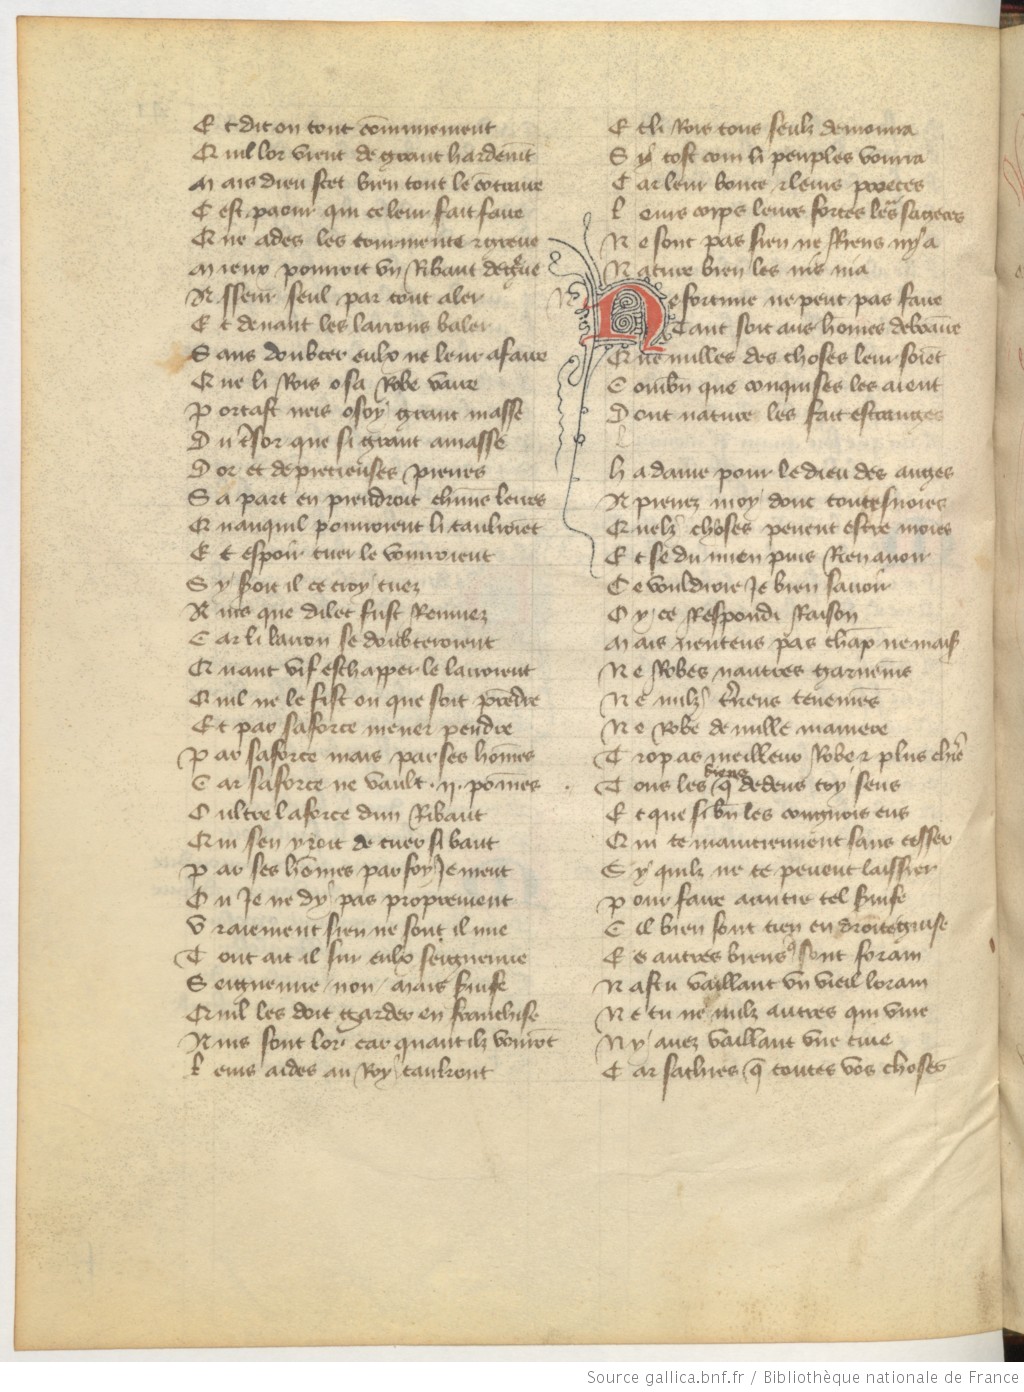 Et dit on tout cōmunement
Quil lor vient de grant hardemēt
Mais dieu scet bien tout le cōtraire
Cest paour qui ce leur fait faire
Que ades les tourmente et grieue
Mieux pourroit vn Ribaut de g̃ue
Asseur seul par tout aler
Et deuant les larrons baler
Sans doubter eulx ne leur afaire
Que li Rois o sa Robe vaire
Portast neis o soy grant masse
Du t̃sor que si grant amasse
Dor et de precieuses pierres
Sa part en prendroit chũs lerres
Quanquil pourroient li tauldroiēt
Et espoir tuer le vourroient
Sy soit il ce croy tuez
Ains que dilec fust Remuez
Car li larron se doubteroient
Quant vif eschapper le lairoient
Quil ne le fist ou que soit prēdre
Et par sa force mener pendre
Par sa force mais par ses hōmes
Car sa force ne vault .ij. pōmes
Oultre la force dun Ribaut
Qui sen yroit de cuer si baut
Par ses hōmes par foy Je ment
Ou Je ne dy pas proprement
Vraiement sien ne sont il mie
Tout ait il sur eulx seigneurie
Seigneurie non mais seruise
Quil les doit garder en franchise
Ains sont lor car quant ilz vourrōt
Leurs aides au Roy tauldront
Et li Rois tous seulz demourra
Sy tost com li peuples vourra
Car leur bonte et leurs proeces
Leurs corps leurs forces leurs sageces
Ne sont pas sien ne Riens ny a
Nature bien les nis nia
Ne fortune ne peut pas faire
Tant soit aus hōmes debōaire
Que nulles des choses leur soiēt
Combn que conquises les aient
Dont nature les fait estranges
Ha dame pour le dieu des anges
Aprenez moy donc toutesuoies
Quelz choses peuent estre moies
Et se du mien puis Rien auoir
Ce vouldroie Je bien sauoir
Oy ce Respondi Raison
Mais nentens pas chāp ne maisō
Ne Robes nautres garnemēs
Ne nulz t̃riens tenemēs
Ne Robe de nulle maniere
Trop as meilleur Robe et plus chĩe
Tous les biens q̄ dedens toy sens
Et que si bn̄ les congnois ens
Qui te maintiennent sans cesser
Sy quilz ne te peuent laissier
Pour faire autre tel seruise
Cil bien sont tien en droite guise
Es autres biens q̉ sont forain
Nas tu vaillant vn vieil lorain
Ne tu ne nulz autres qui viue
Ny auez vaillant vne ciue
Car sachies q̄ toutes vos choses